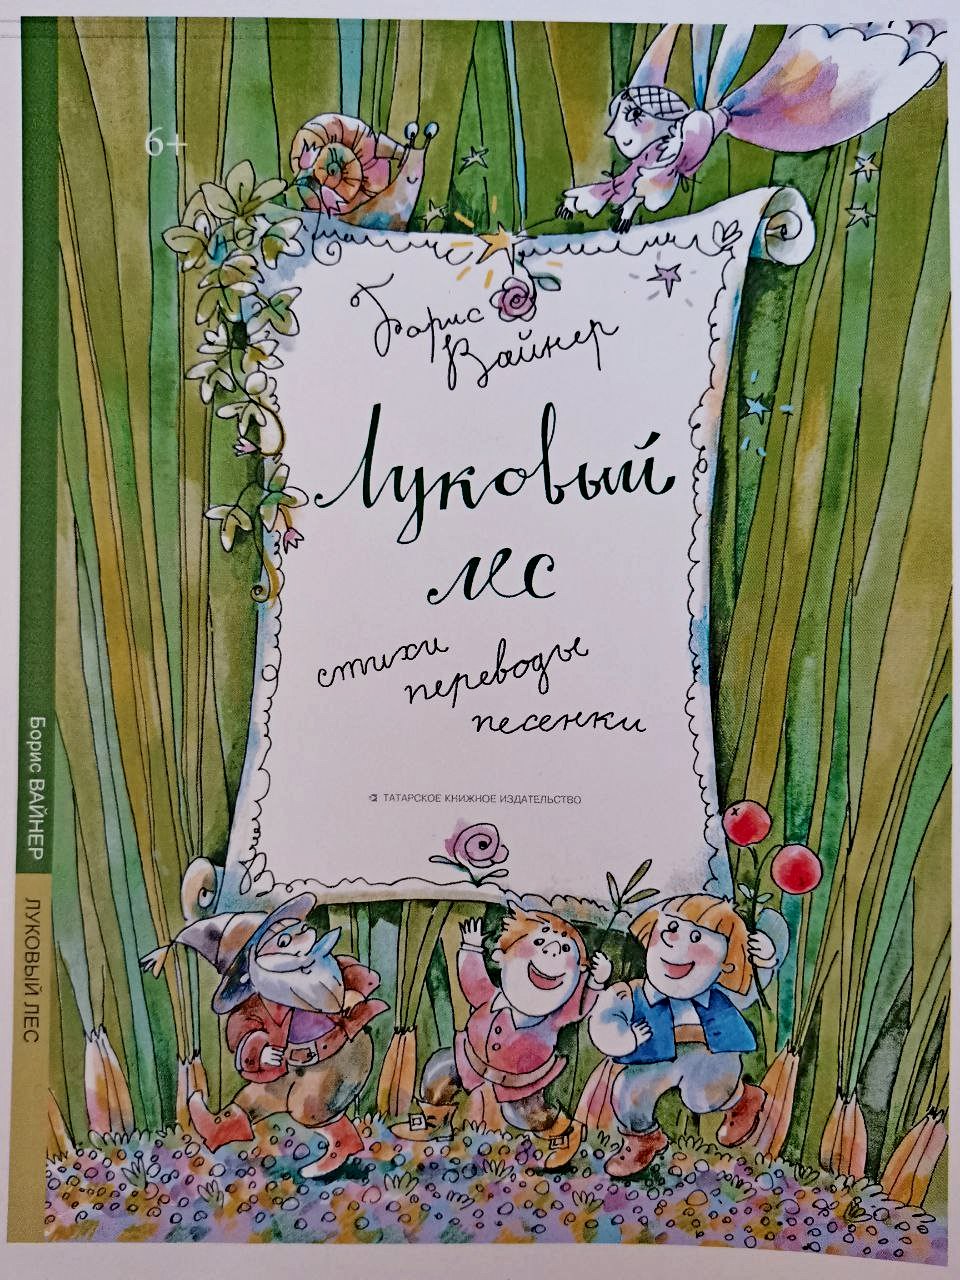 6+
Борис
Вайнер
Луковый
лес
стихи
переводы
песенки
ТАТАРСКОЕ КНИЖНОЕ ИЗДАТЕЛЬСТВО
Борис ВАЙНЕР
ЛУКОВЫЙ ЛЕС